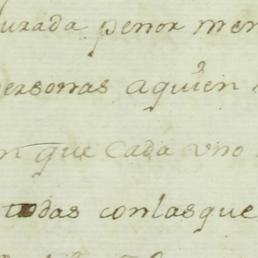 urada penor men
personas aquien
n que cada uno
todas conlasque